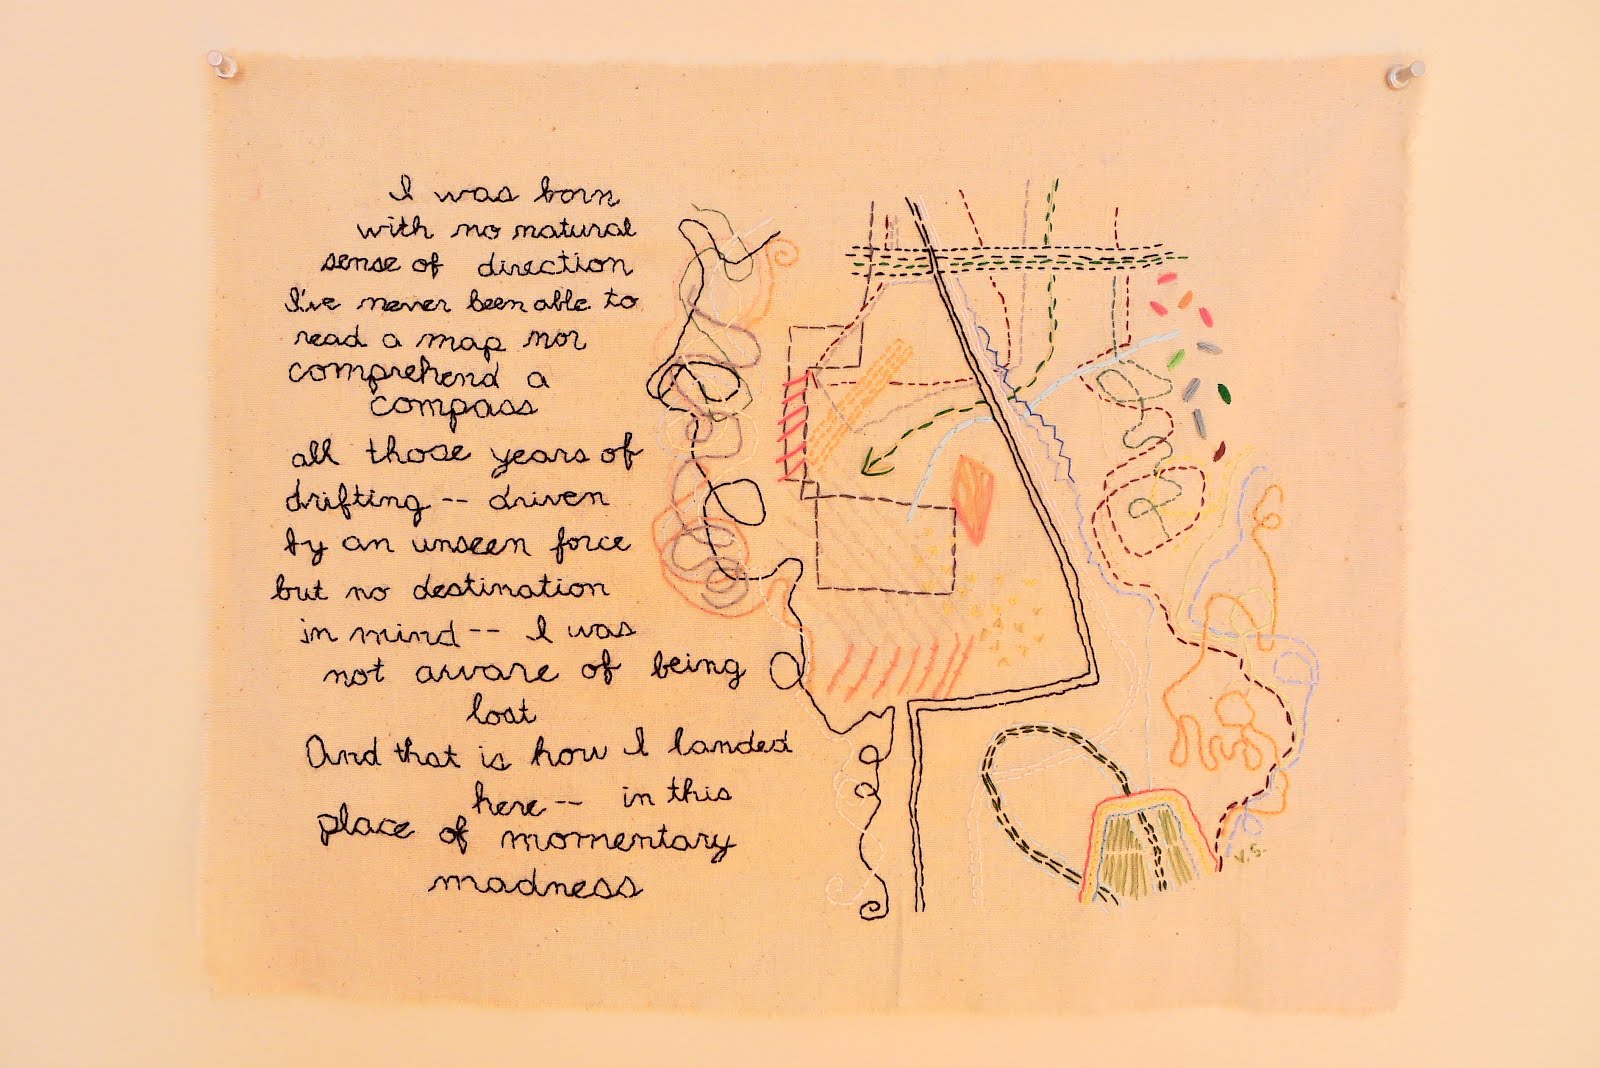 I was born
with no natural
sense of direction
I've never been able to
read a map nor
comprehend a
compass
all those years of
drifting -- driven
by an unseen force
but no destination
in mind -- I was
not aware of being
lost
And that is how I landed
here -- in this
place of momentary
madness
V.S.